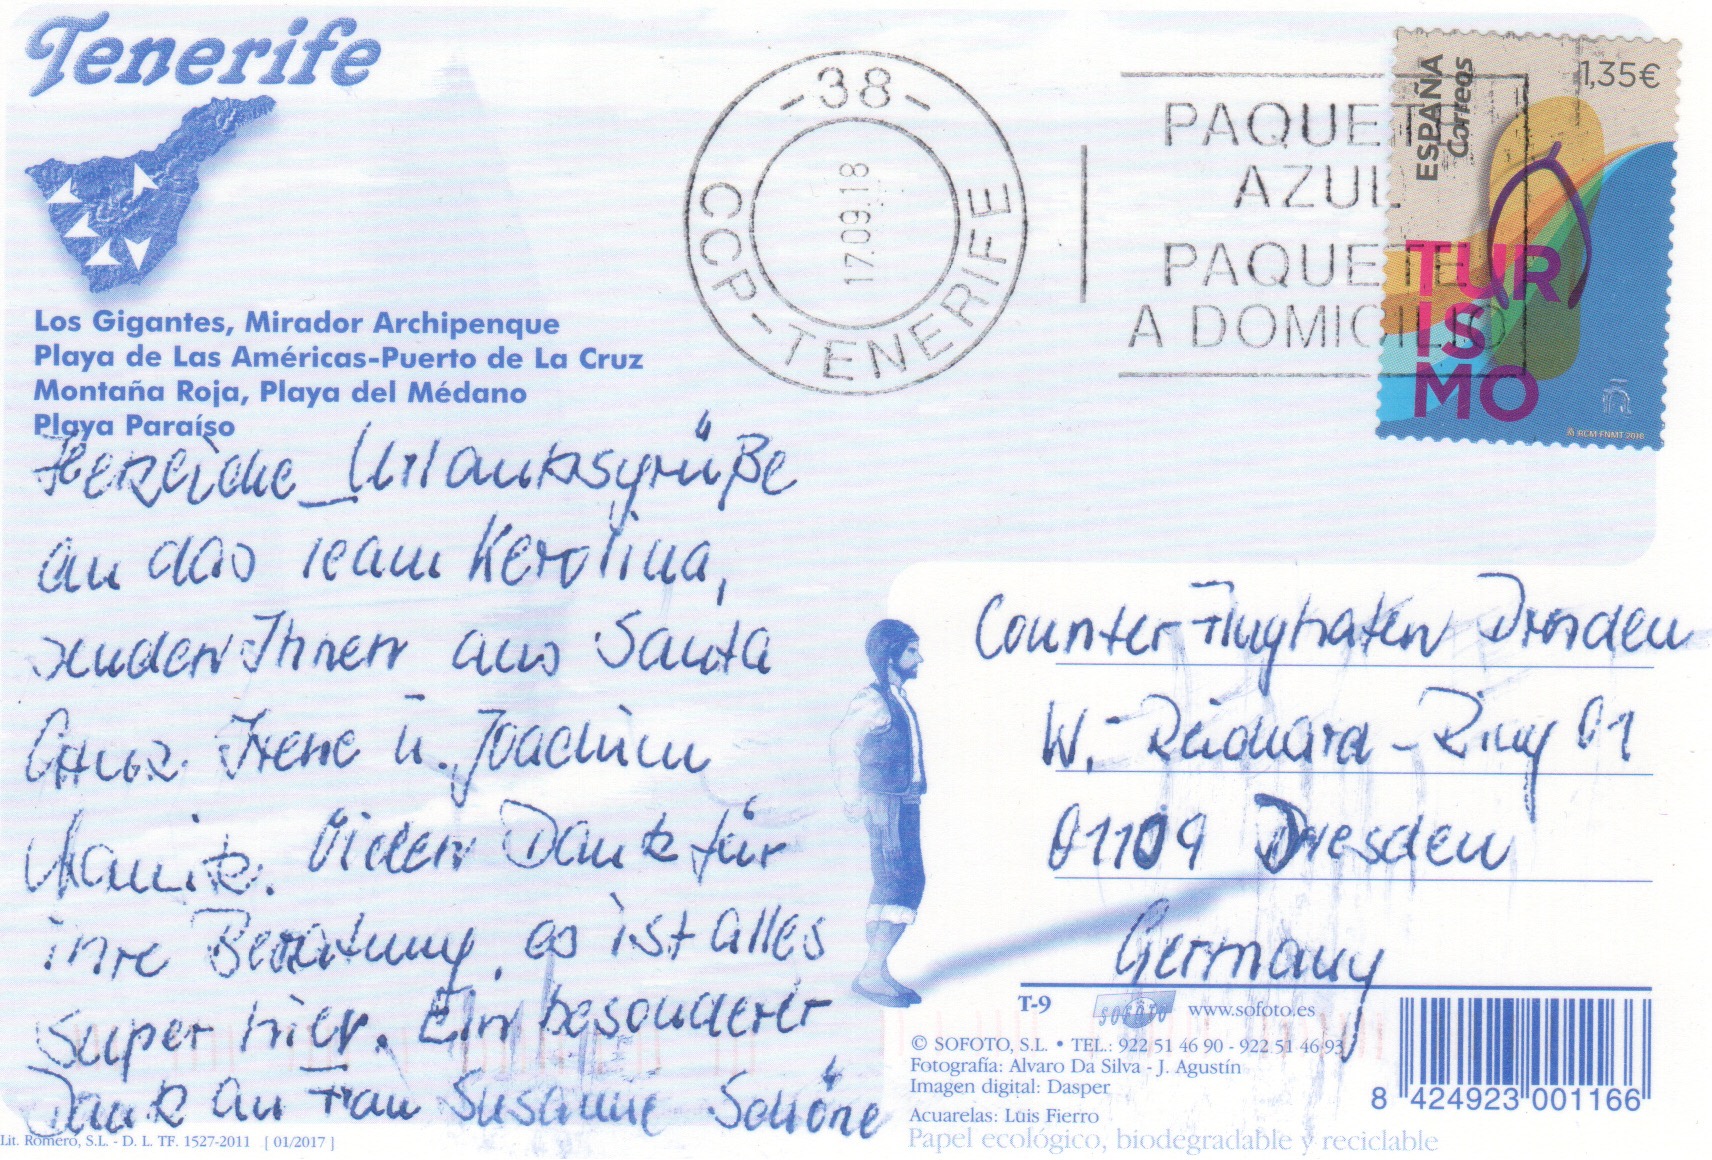 Tenerife
Los Gigantes, Mirador Archipenque
Playa de Las Américas-Puerto de La Cruz
Montaña Roja, Playa del Médano
Playa Paraíso
- 38 -
CCP - TENERIFE
17.09.18
PAQUETE
AZUL
PAQUETE
A DOMICILIO
ESPAÑA
Correos
1,35€
TUR
IS
MO
RCM-FNMT 2018
Herzliche Urlaubsgrüße
an das Team Karolina,
senden Ihnen aus Santa
Cruz. Irene u. Joachim
Vielen Dank für
ihre Beratung, es ist alles
super hier. Ein besonderer
Dank an Frau Susanne Schöne
Counter Flughafen Dresden
W.-Reichard-Ring 01
01109 Dresden
Germany
T-9
SOFOTO
www.sofoto.es
© SOFOTO, S.L. • TEL.: 922 51 46 90 - 922 51 46 93
Fotografía: Alvaro Da Silva - J. Agustín
Imagen digital: Dasper
Acuarelas: Luis Fierro
Papel ecológico, biodegradable y reciclable
8 424923 001166
Lit. Romero, S.L. - D. L. TF. 1527-2011 [ 01/2017 ]